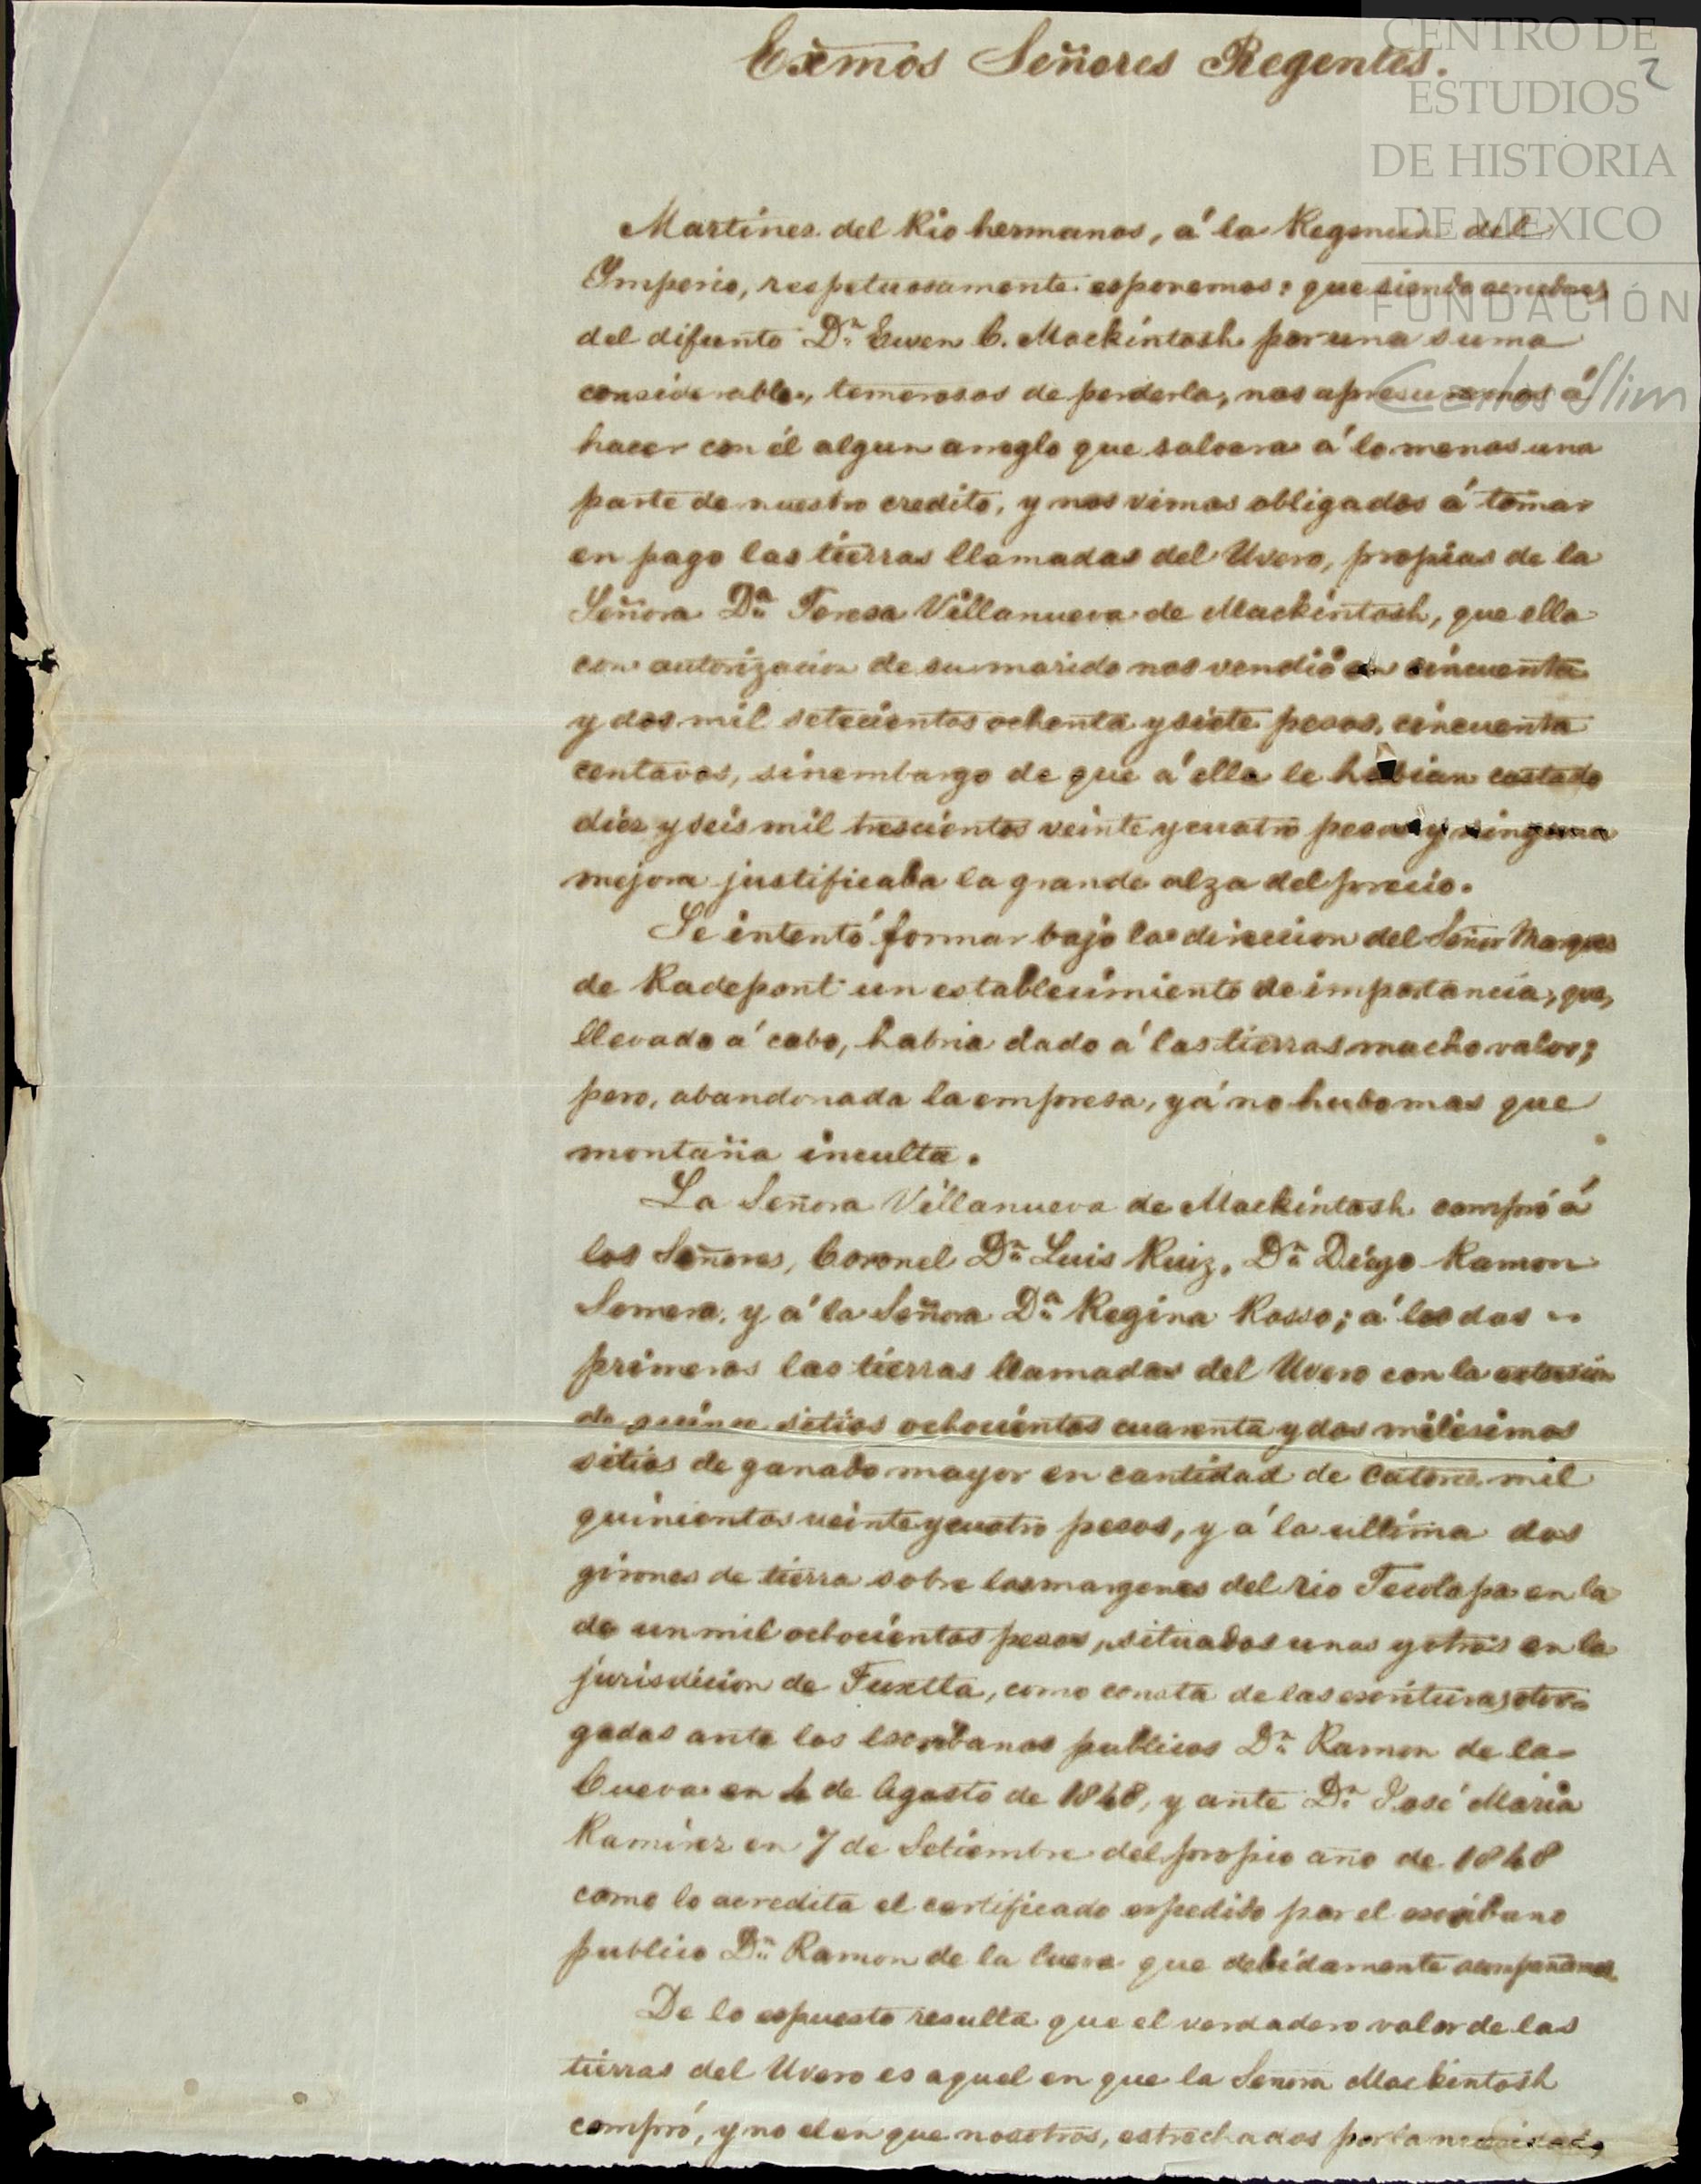 Exmos Señores Regentes.
2
CENTRO DE
ESTUDIOS
DE HISTORIA
DE MEXICO
FUNDACIÓN
Carlos Slim
Martinez del Rio hermanos, á la Regencia del
Imperio, respetuosamente esponemos: que siendo acredores
del difunto Dn. Ewen C. Mackintosh por una suma
considerable, temerosos de perderla, nos apresuramos á
hacer con él algun arreglo que salvara á lo menos una
parte de nuestro credito, y nos vimos obligados á tomar
en pago las tierras llamadas del Uvero, propias de la
Señora Da. Teresa Villanueva de Mackintosh, que ella
con autorizacion de su marido nos vendió en cincuenta
y dos mil setecientos ochenta y siete pesos, cincuenta
centavos, sinembargo de que á ella le habian costado
diez y seis mil trescientos veinte y cuatro pesos y ninguna
mejora justificaba la grande alza del precio.
Se intentó formar bajo la direccion del Señor Marques
de Radepont un establecimiento de importancia, que,
llevado á cabo, habria dado á las tierras mucho valor;
pero, abandonada la empresa, yá no hubo mas que
montaña inculta.
La Señora Villanueva de Mackintosh compró á
los Señores, Coronel Dn. Luis Ruiz, Dn. Diego Ramon
Somera, y á la Señora Da. Regina Rosso; á los dos
primeros las tierras llamadas del Uvero con la estension
de quince sitios ochocientos cuarenta y dos milesimos
sitios de ganado mayor en cantidad de Catorce mil
quinientos veinte y cuatro pesos, y á la ultima dos
girones de tierra sobre las margenes del rio Tecolapa en la
de un mil ochocientos pesos, situados unos y otros en la
jurisdicion de Tuxtla, como consta de las escrituras otor-
gadas ante los Escribanos publicos Dn. Ramon de la
Cueva en 4 de Agosto de 1848, y ante Dn. José Maria
Ramirez en 7 de Setiembre del propio año de 1848
como lo acredita el certificado espedido por el escribano
publico Dn. Ramon de la Cueva que debidamente acompañamos.
De lo espuesto resulta que el verdadero valor de las
tierras del Uvero es aquel en que la Señora Mackintosh
compró, y no el en que nosotros, estrechados por la necesidad,